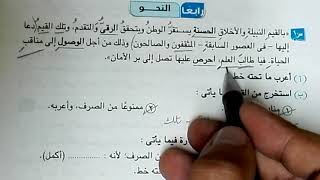 رابعًا النحو
س١ «بالقيم النبيلة والأخلاق الحسنة يستقر الوطن ويتحقق الرقي والتقدم، وتلك القيم دعا
إليها - في العصور السابقة - المثقفون والصالحون؛ وذلك من أجل الوصول إلى مناقب
الحياة. فيا طالب العلم، احرص عليها تصل إلى بر الأمان».
(أ) أعرب ما تحته خط
(ب) استخرج من القطعة ما يأتى:
ممنوعًا من الصرف، وأعربه.
رة فيما يأتى:
لأنه: (أكمل).